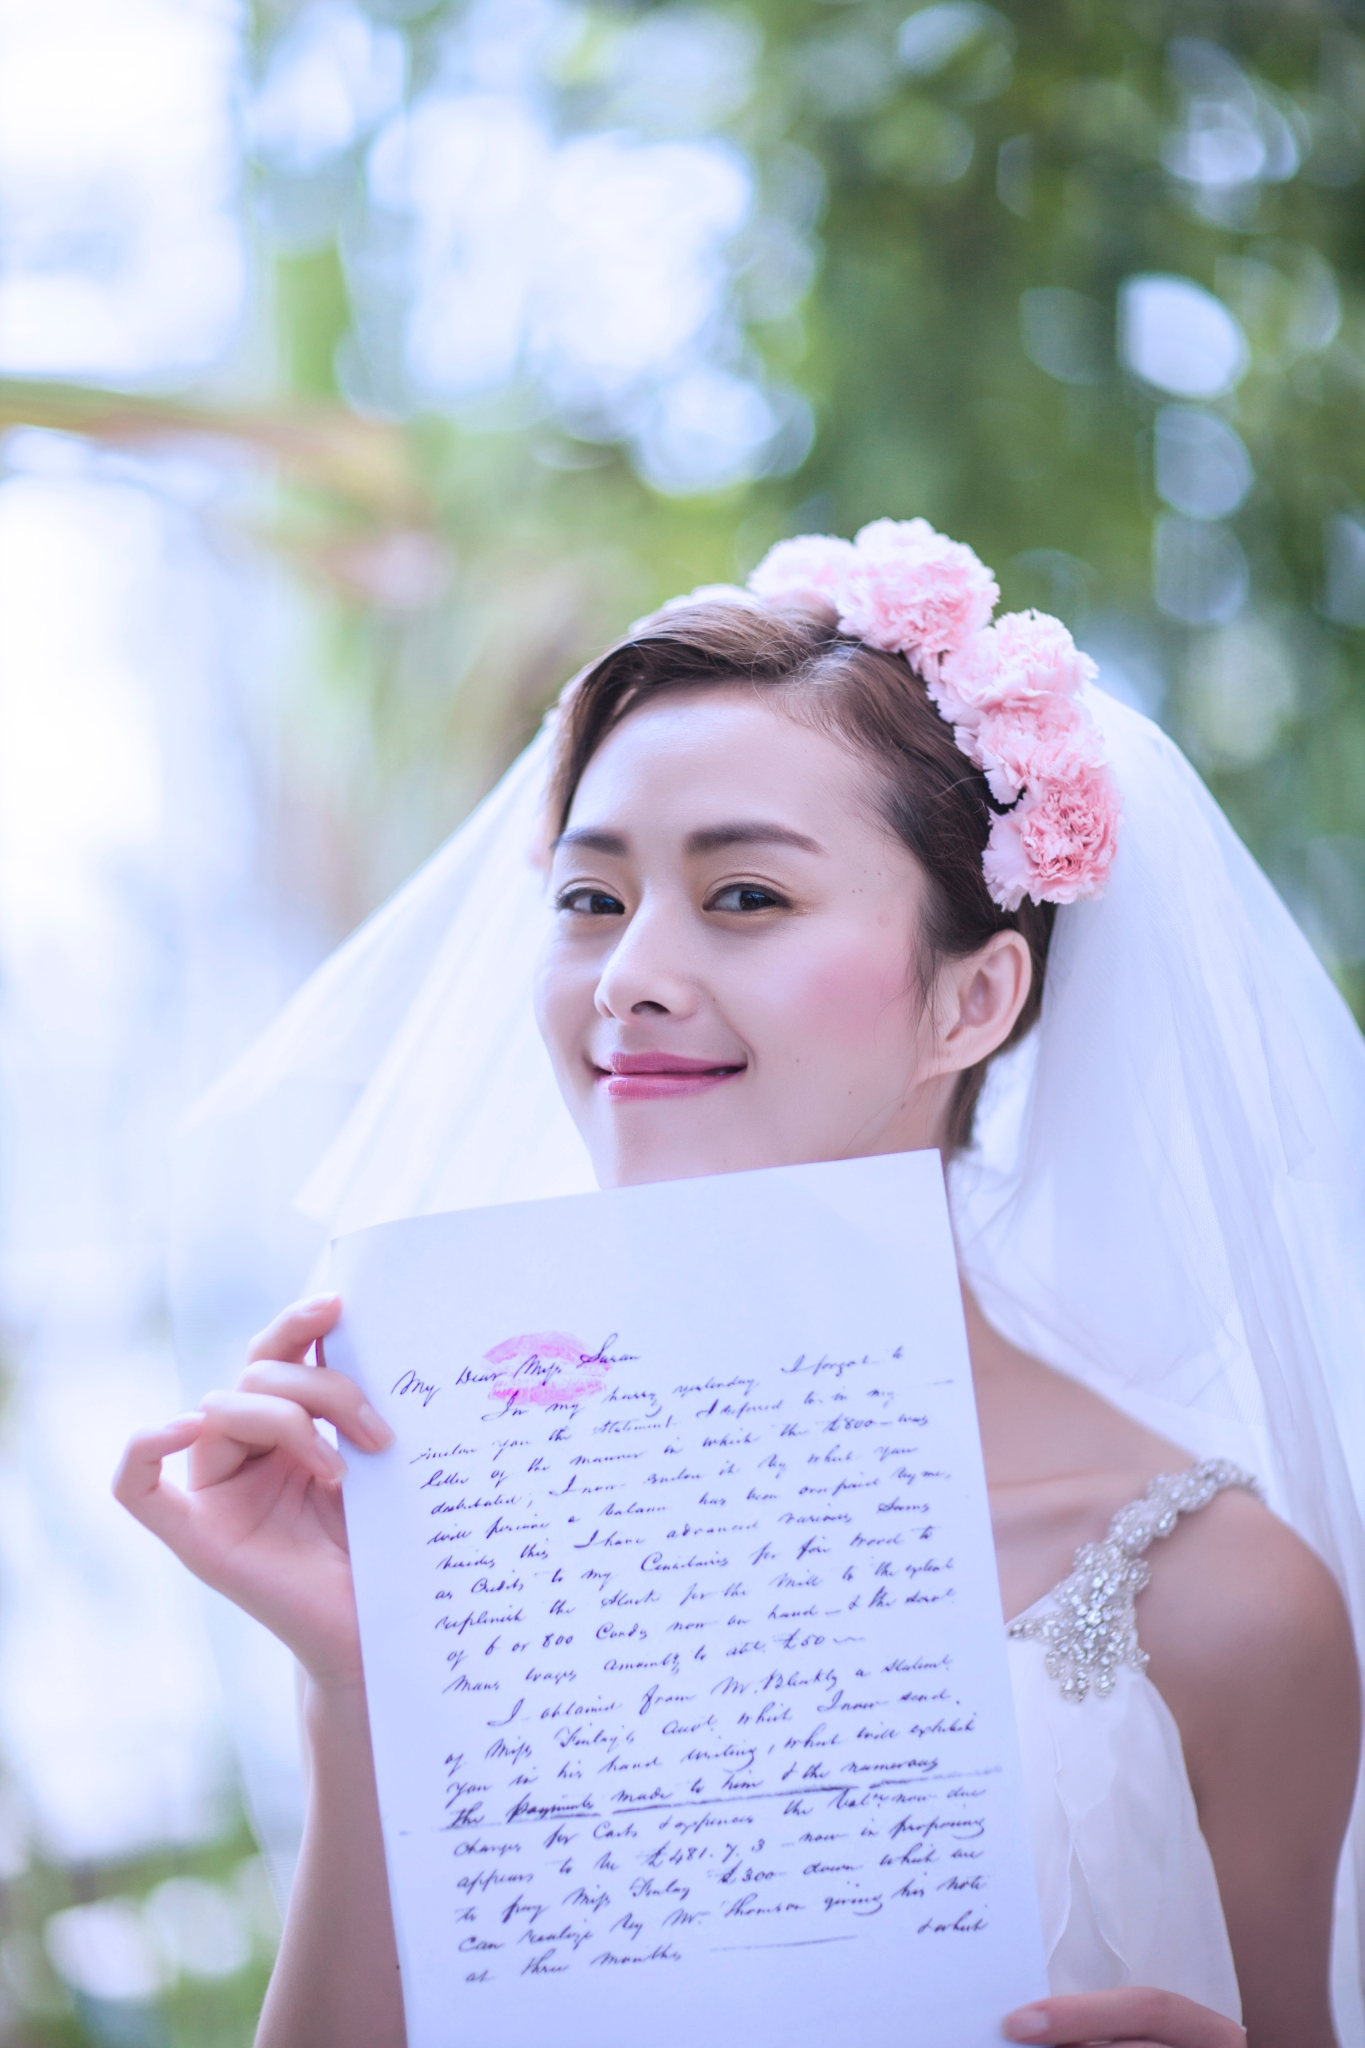 My Dear Miss Susan
In my hurry yesterday I forgot to
enclose you the Statement I referred to in my
letter of the manner in which the £800 was
distributed; I now enclose it by which you
will perceive a balance has been over paid by me,
besides this I have advanced various Sums
as Credits to my for fire wood to
replenish the Stock for the Mill to the extent
of 6 or 800 Candy now on hand — & the
Mans wages amounts to abt. £50
I obtained from Mr. a Statemt.
of Miss Finlay's Acct. which I now send
you in his hand writing, which will exhibit
the payments made to him & the numerous
charges for Costs & expences the Balce. now due
appears to be £481.7.3 now in proposing
to pay Miss Finlay £300 down which we
can realize by Mr. Thomson giving his note
at three months & which